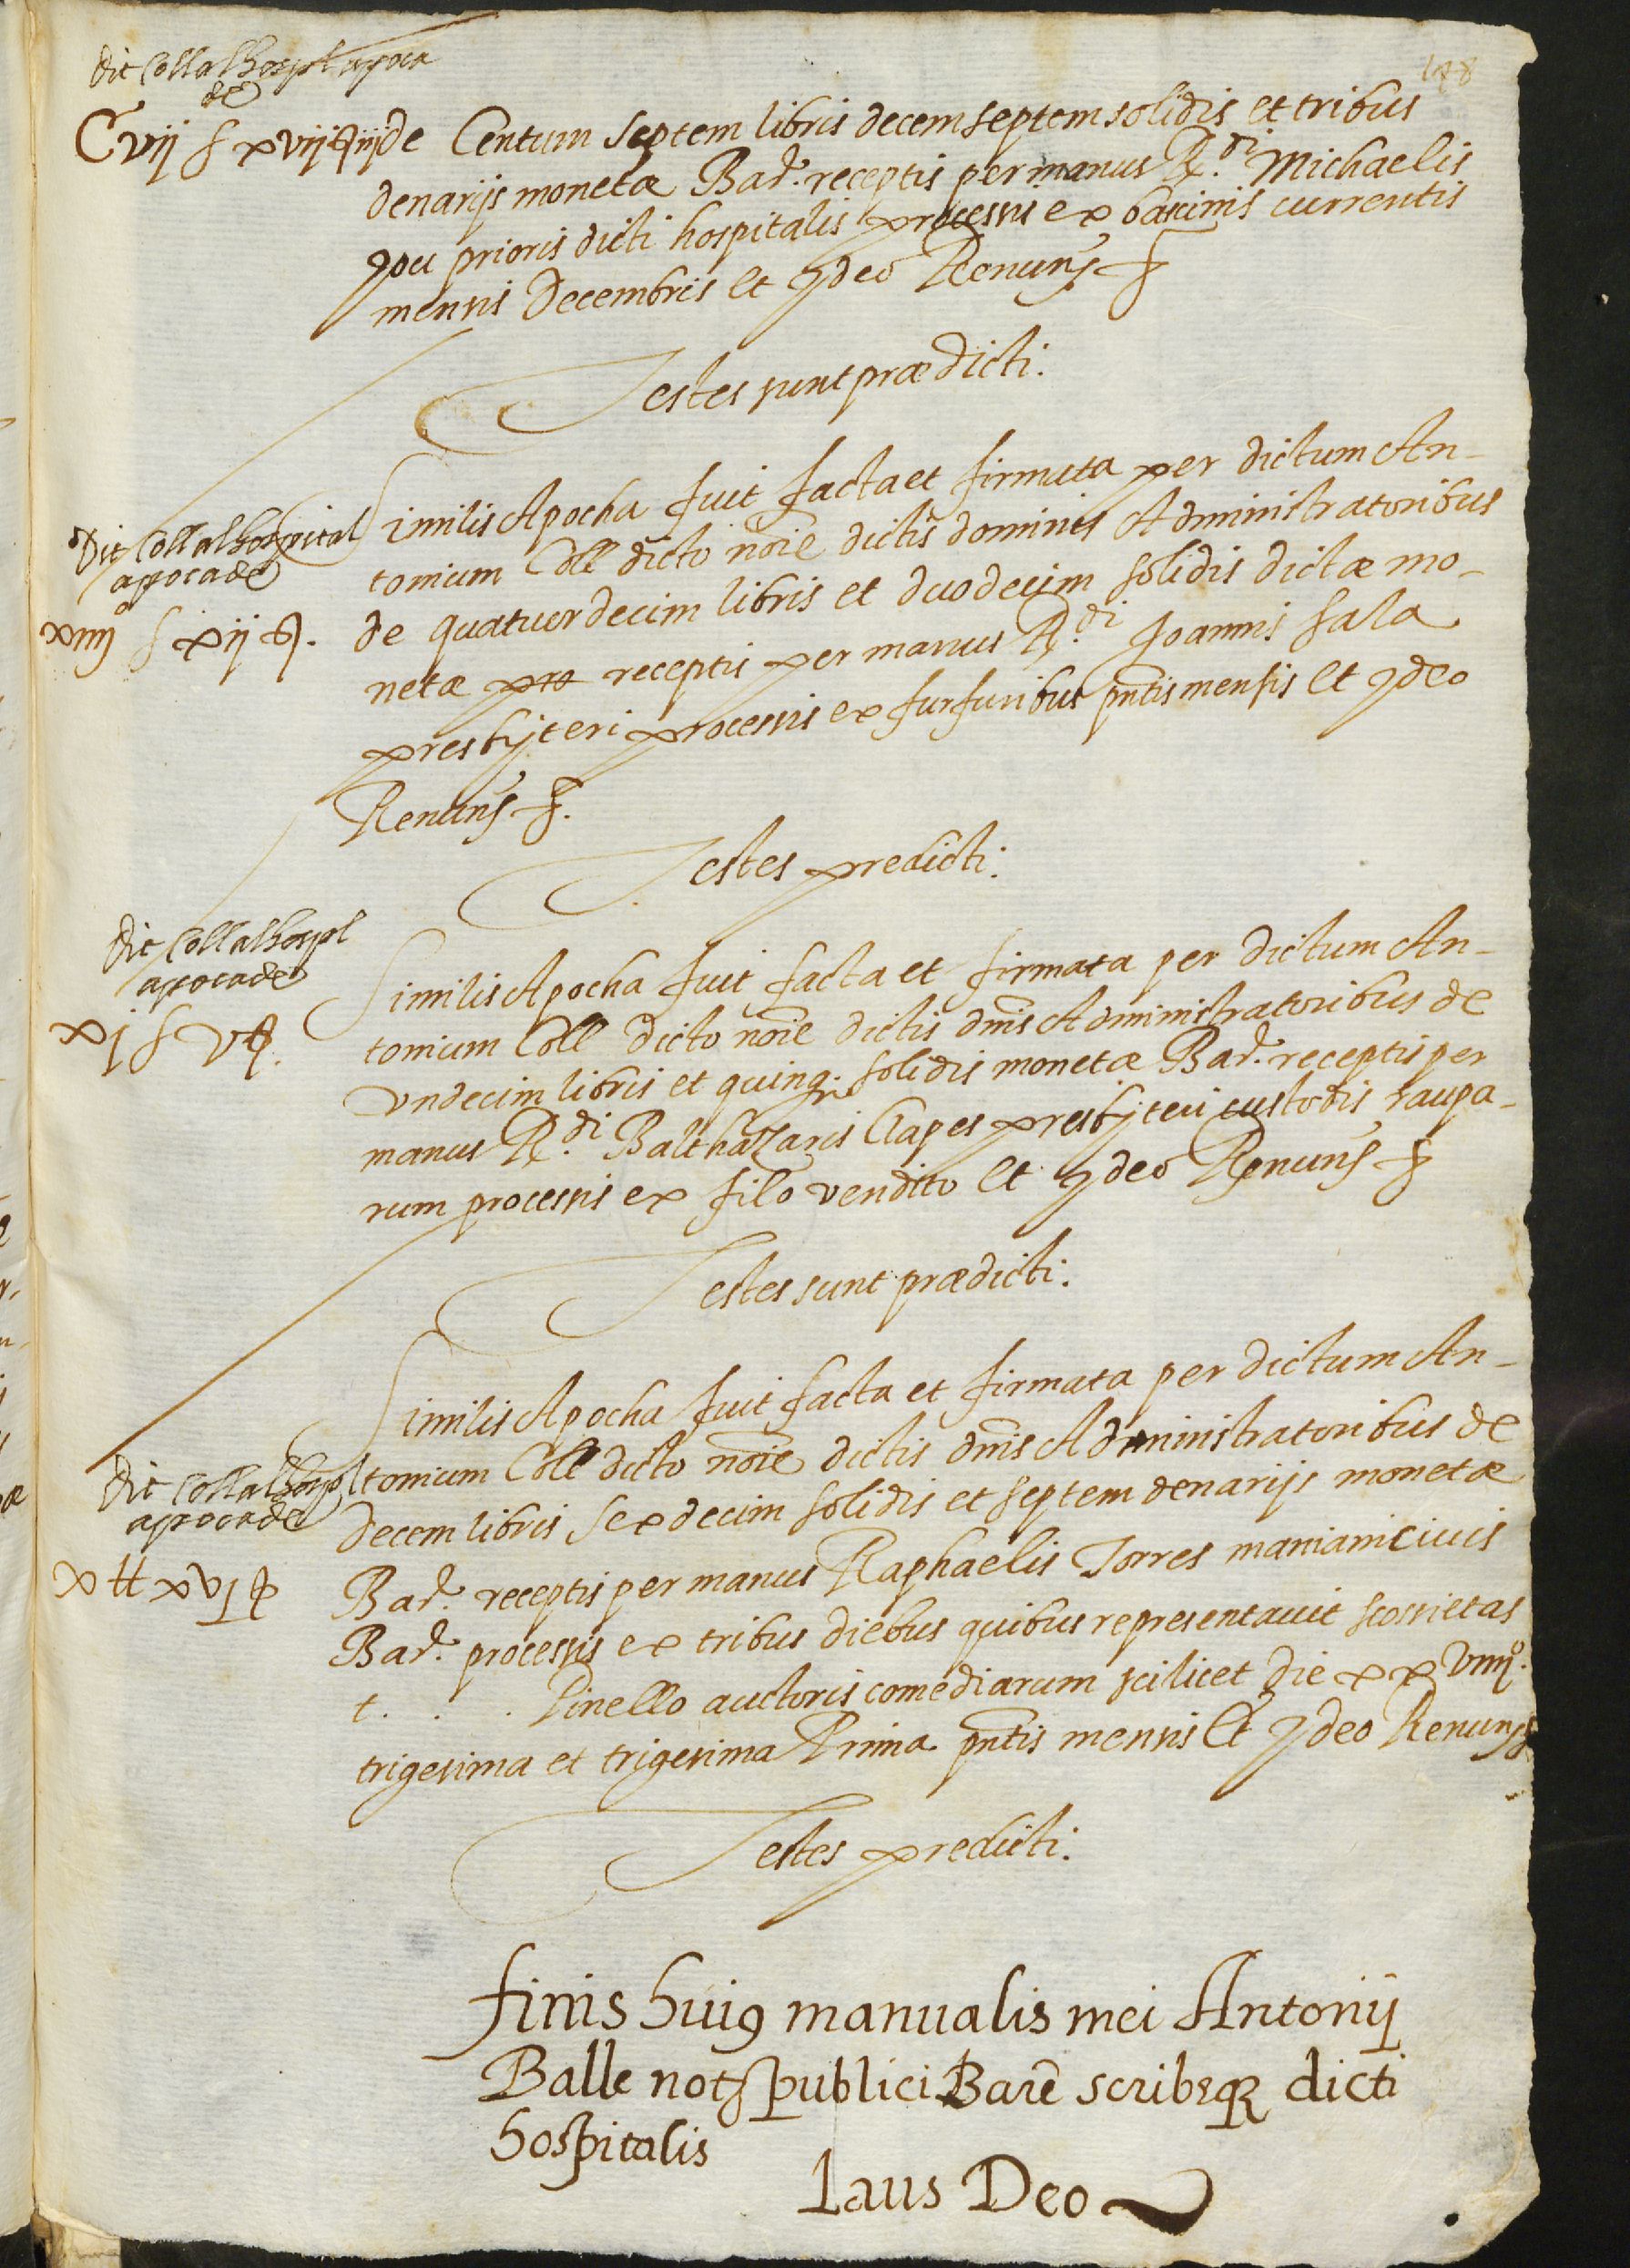 148
dit Coll al hospl apoca
de
Cvij s xvij d iij de Centum septem libris decem septem solidis et tribus
denarijs monetæ Bar. receptis per manus R.di Michaelis
prioris dicti hospitalis processis ex bascinis currentis
mensis Decembris et ideo Renuns
Testes sunt prædicti.
Dit Coll al hospital
apoca de
xiiij s xij d.
Similis Apocha fuit facta et firmata per dictum An-
tonium Coll dicto noīe dictis dominis Administratoribus
de quatuordecim libris et duodecim solidis dictæ mo-
netæ pro receptis per manus R.di Joannis Sala
presbyteri processis ex furfuribus pntis mensis et ideo
Renuns
Testes predicti.
Dit Coll al hospl
apoca de
xj s v d.
Similis Apocha fuit facta et firmata per dictum An-
tonium Coll dicto noīe dictis dnīs Administratoribus de
vndecim libris et quinq. solidis monetæ Bar. receptis per
manus R.di Balthazaris Clapes presbyteri custodis raupa-
rum processis ex filo vendito et ideo Renuns
Testes sunt prædicti.
Similis Apocha fuit facta et firmata per dictum An-
Dit Coll al hospl
apoca de
x tt xvj d
tonium Coll dicto noīe dictis dnīs Administratoribus de
decem libris sexdecim solidis et septem denarijs monetæ
Bar. receptis per manus Raphaelis Torres maniani civis
Bar. processis ex tribus diebus quibus representavit
t . . . Pinello auctoris comediarum scilicet die xxviiijº.
trigesima et trigesima Prima pntis mensis et ideo Renuns
Testes predicti.
finis huiꝰ manualis mei Antonij
Balle not publici Barē scribeqꝫ dicti
hospitalis
Laus Deo